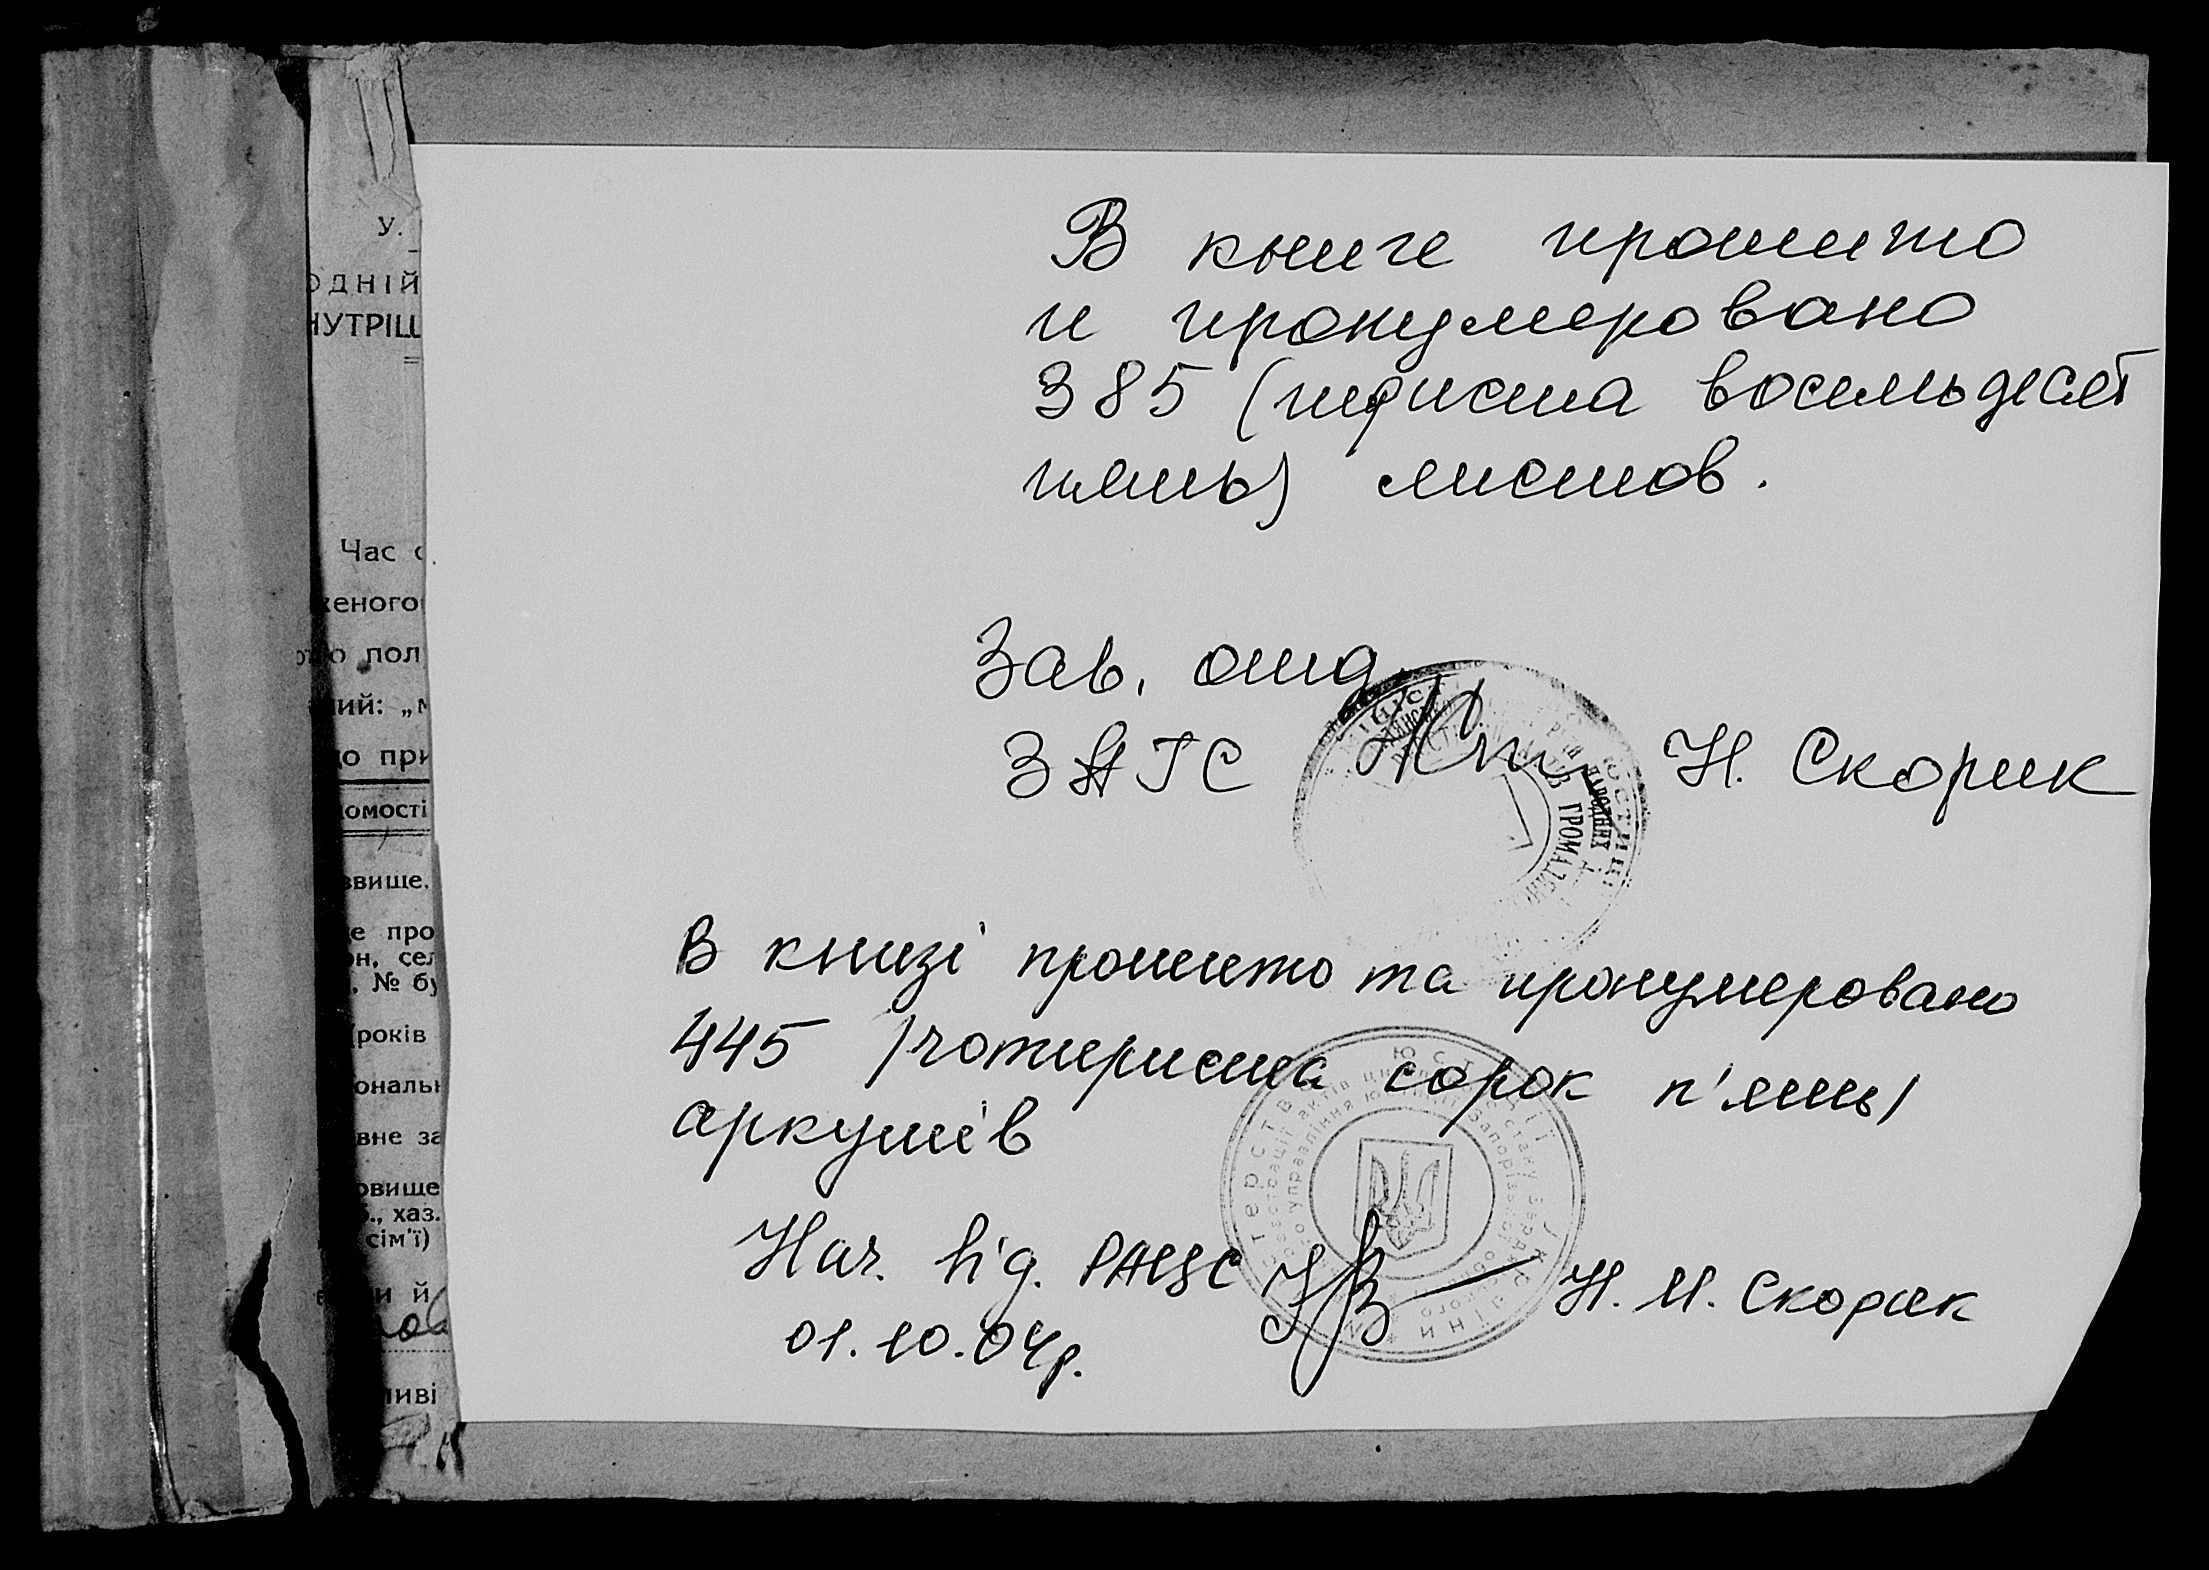 У.
ОДНІЙ
НУТРІШ
Час с
женого
пол
ий: „м
до при
домості
звище.
е про
он, сел
, № бу
років
ональн
вне за
овище
б., хаз.
сім'ї)
и й
ливі
В книге прошито
и пронумеровано
385 (триста восемьдесят
пять) листов.
Зав. отд.
ЗАГС Н. Скорик
НАРОДНИХ
ГРОМАДЯНСЬ
ЮСТИЦІ
В книзі прошито та пронумеровано
445 /чотириста сорок п'ять/
аркушів
Нач. від. РАЦС Н. М. Скорик
01.10.04р.